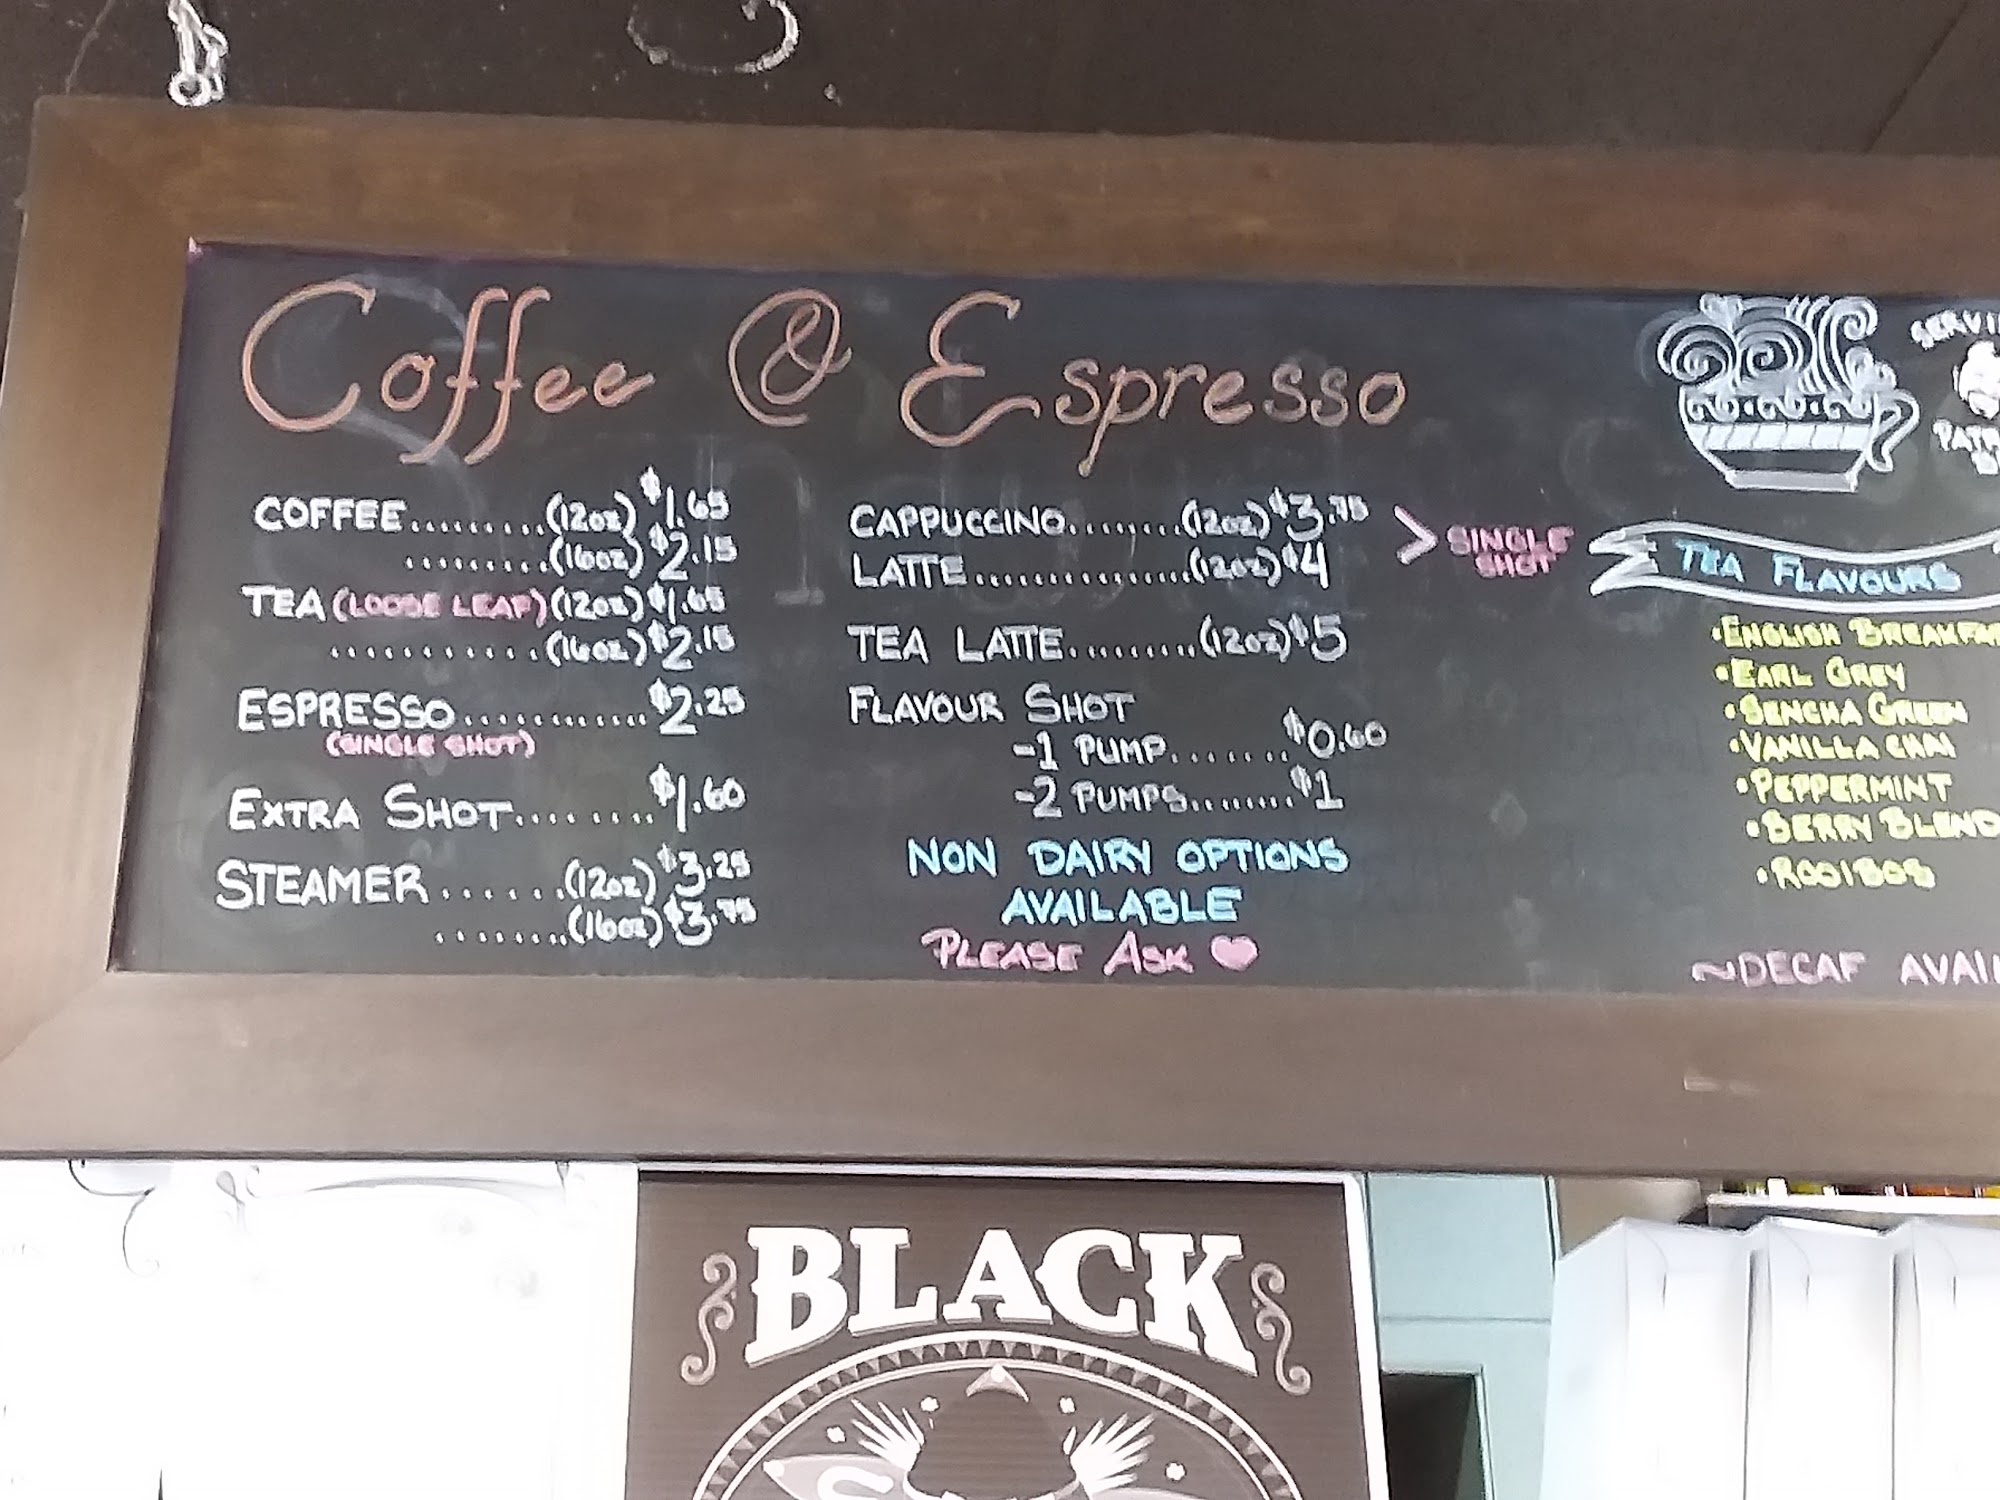 Coffee & Espresso
COFFEE.........(12oz) $1.65
.........(16oz) $2.15
TEA (LOOSE LEAF) (12oz) $1.65
............(16oz) $2.15
ESPRESSO............$2.25
(SINGLE SHOT)
EXTRA SHOT........$1.60
STEAMER......(12oz) $3.25
........(16oz) $3.75
CAPPUCCINO........(12oz) $3.75
LATTE................(12oz) $4
> SINGLE
SHOT
TEA LATTE.........(12oz) $5
FLAVOUR SHOT
-1 PUMP.......$0.60
-2 PUMPS........$1
NON DAIRY OPTIONS
AVAILABLE
PLEASE ASK ♥
TEA FLAVOURS
•ENGLISH BREAKFA
•EARL GREY
•SENCHA GREEN
•VANILLA CHAI
•PEPPERMINT
•BERRY BLEND
•ROOIBOS
~DECAF AVAIL
BLACK